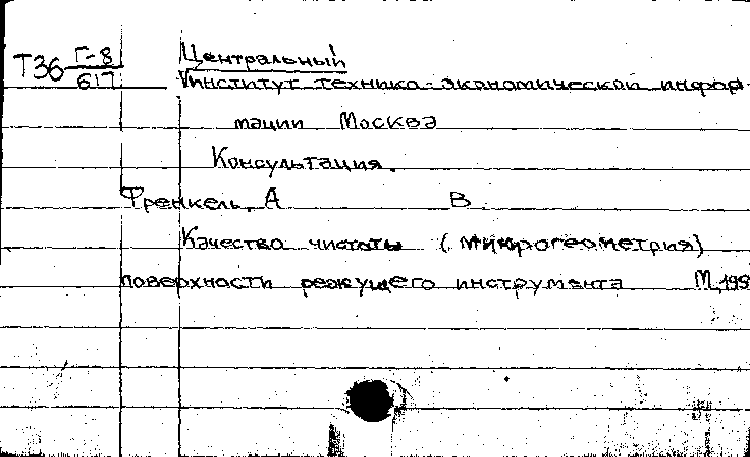 Т36 Г-8/617 Центральный
институт технико-экономической инфор
мации Москва
Консультация.
Френкель, А В.
Качество чистоты (микрогеометрия)
поверхности режущего инструмента М, 195